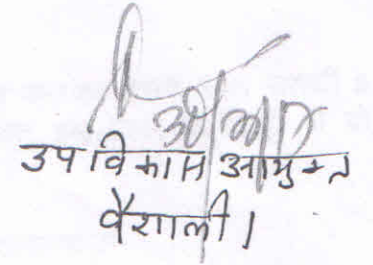 उप विकास आयुक्त
वैशाली।